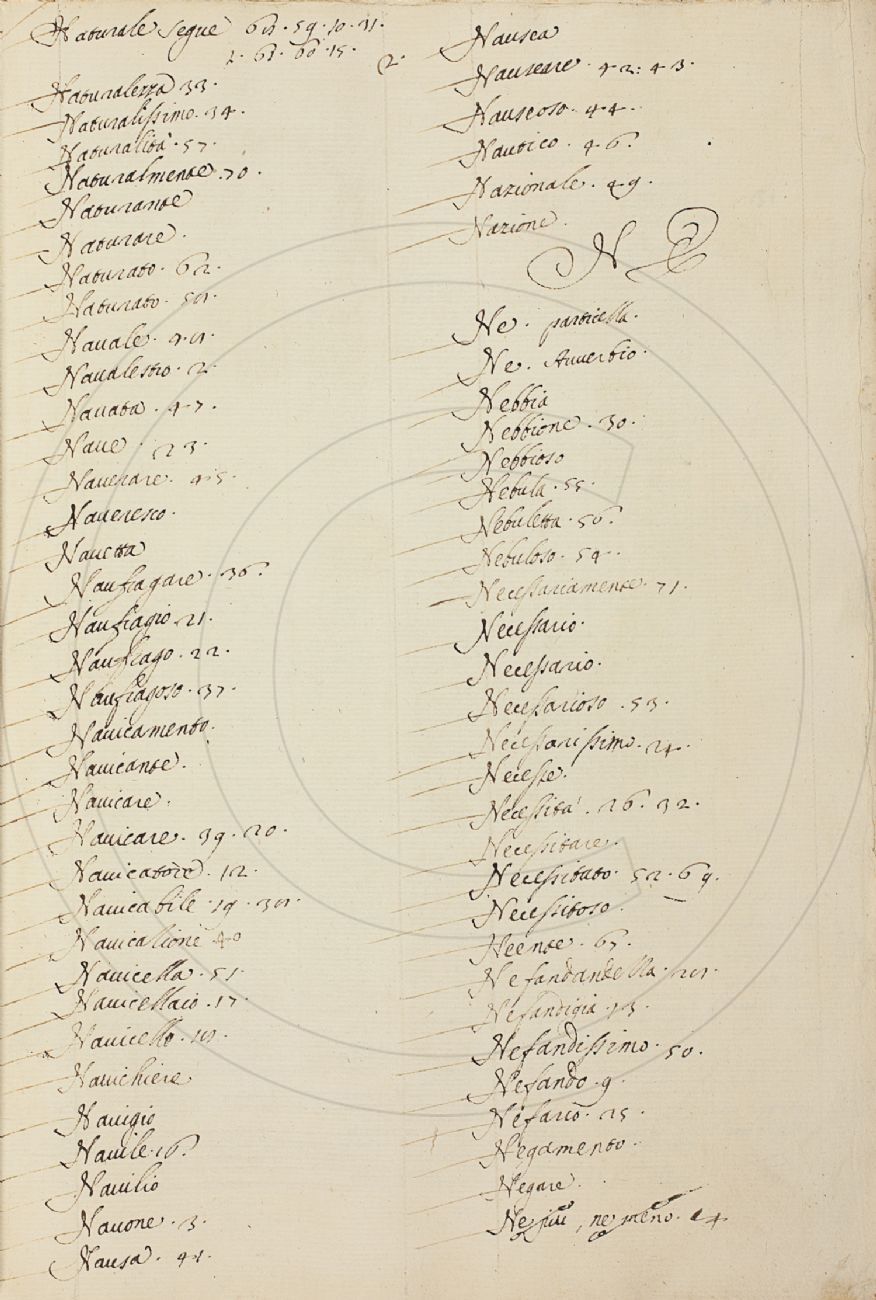 Naturale segue 68. 59. 10. 31.
2. 61. 60. 15.
Naturalezza 33.
Naturalissimo. 34.
Naturalità. 57.
Naturalmente. 70.
Naturante
Naturare.
Naturato. 62.
Naturato. 58.
Nauale. 48.
Naualestro. 2.
Nauata. 47.
Naue. 23.
Nauerare. 45.
Naueresco.
Nauetta
Naufragare. 36.
Naufragio. 21.
Naufrago. 22.
Naufragoso. 37.
Nauicamento.
Nauicante.
Nauicare.
Nauicare. 39. 20.
Nauicatore. 12.
Nauicabile. 19. 38.
Nauicatione 40
Nauicella. 51.
Nauicellaio. 17.
Nauicello. 18.
Nauichiere
Nauigio
Nauile. 16.
Nauilio
Nauone. 3.
Nausa. 41.
2.
Nausea
Nauseare. 42: 43.
Nauseoso. 44.
Nautico. 46.
Nazionale. 49.
Nazione.
N E
Ne. particella.
Ne. Auuerbio.
Nebbia
Nebbione. 30.
Nebbioso
Nebula. 55.
Nebuletta. 56.
Nebuloso. 54.
Necessariamente. 71.
Necessario.
Necessario.
Necessarioso. 53.
Necessarissimo. 24.
Necesse.
Necessità. 26. 32.
Necessitare.
Necessitato. 52. 69.
Necessitoso.
Neente. 67.
Nefandandella. 28.
Nefandigia. 13.
Nefandissimo. 50.
Nefando. 9.
Nefario. 25.
Negamento.
Negare.
Ne più, ne meno. 14.